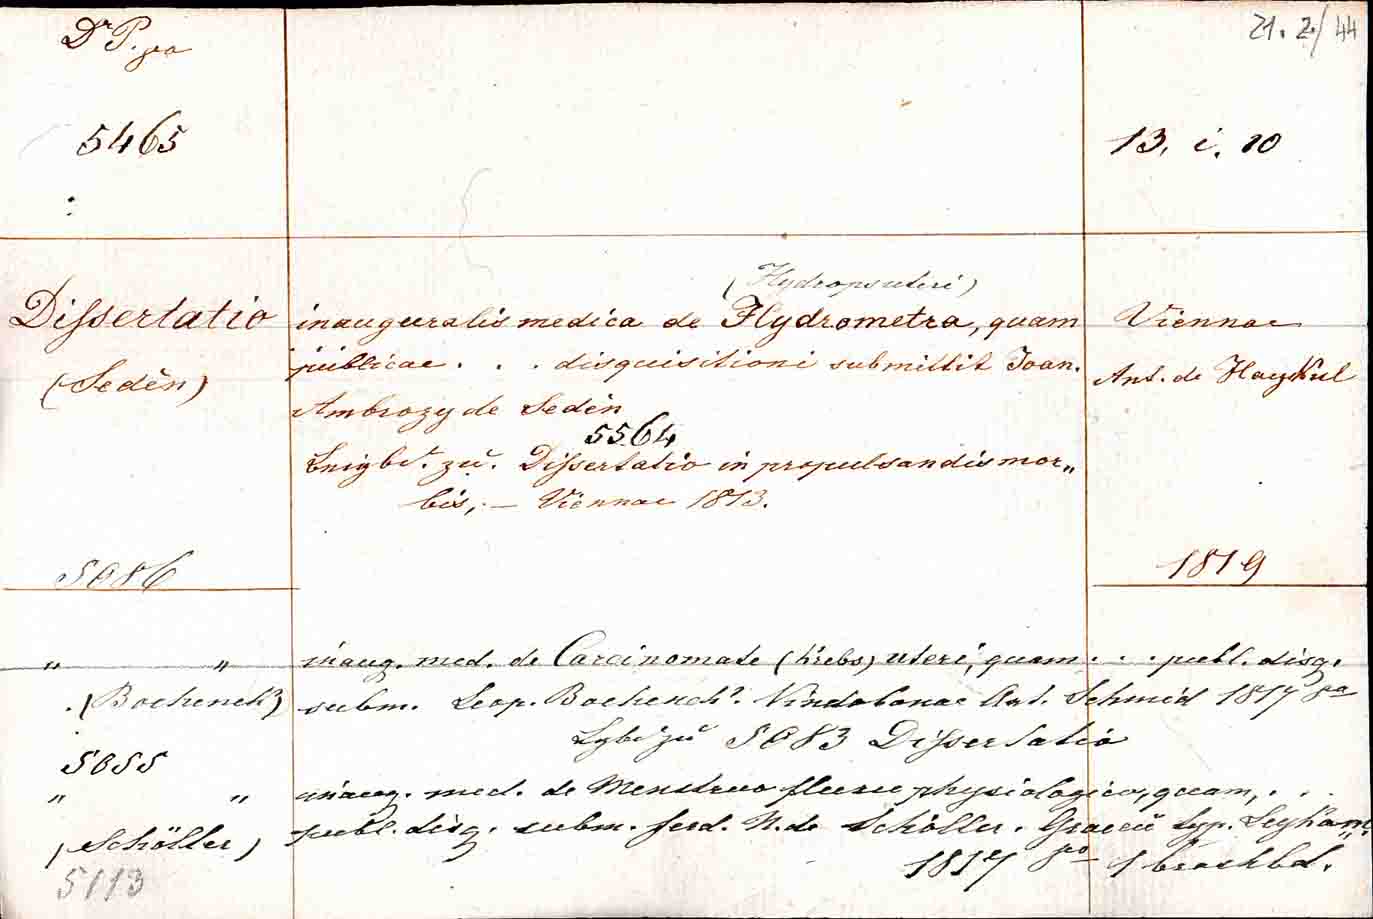 Dr P. ga
21. 2/44
5465
13. i. 10
(Hydrops uteri)
Dissertatio inauguralis medica de Hydrometra, quam Viennae
publicae . . . disquisitioni submittit Joan. Ant. de Haykul
(Sedèn)
Ambrozy de Sedèn
5564
zu. Dissertatio in propulsandis mor„
bis, — Viennae 1813.
5686
1819
„ „ inaug. med. de Carcinomate (Krebs) uteri, quam . . . publ. disq.
(Bochenek) subm. Leop. Bochenek. Vindobonae Ant. Schmid 1817
zu 5683 Dissertatio
5655
„ „ inaug. med. de Menstruo fluxu physiologico, quam, . . .
(Schöller) publ. disq. subm. ferd. N. de Schöller. Graecii typ. Leykam„
1817 1 brochbd.
5113